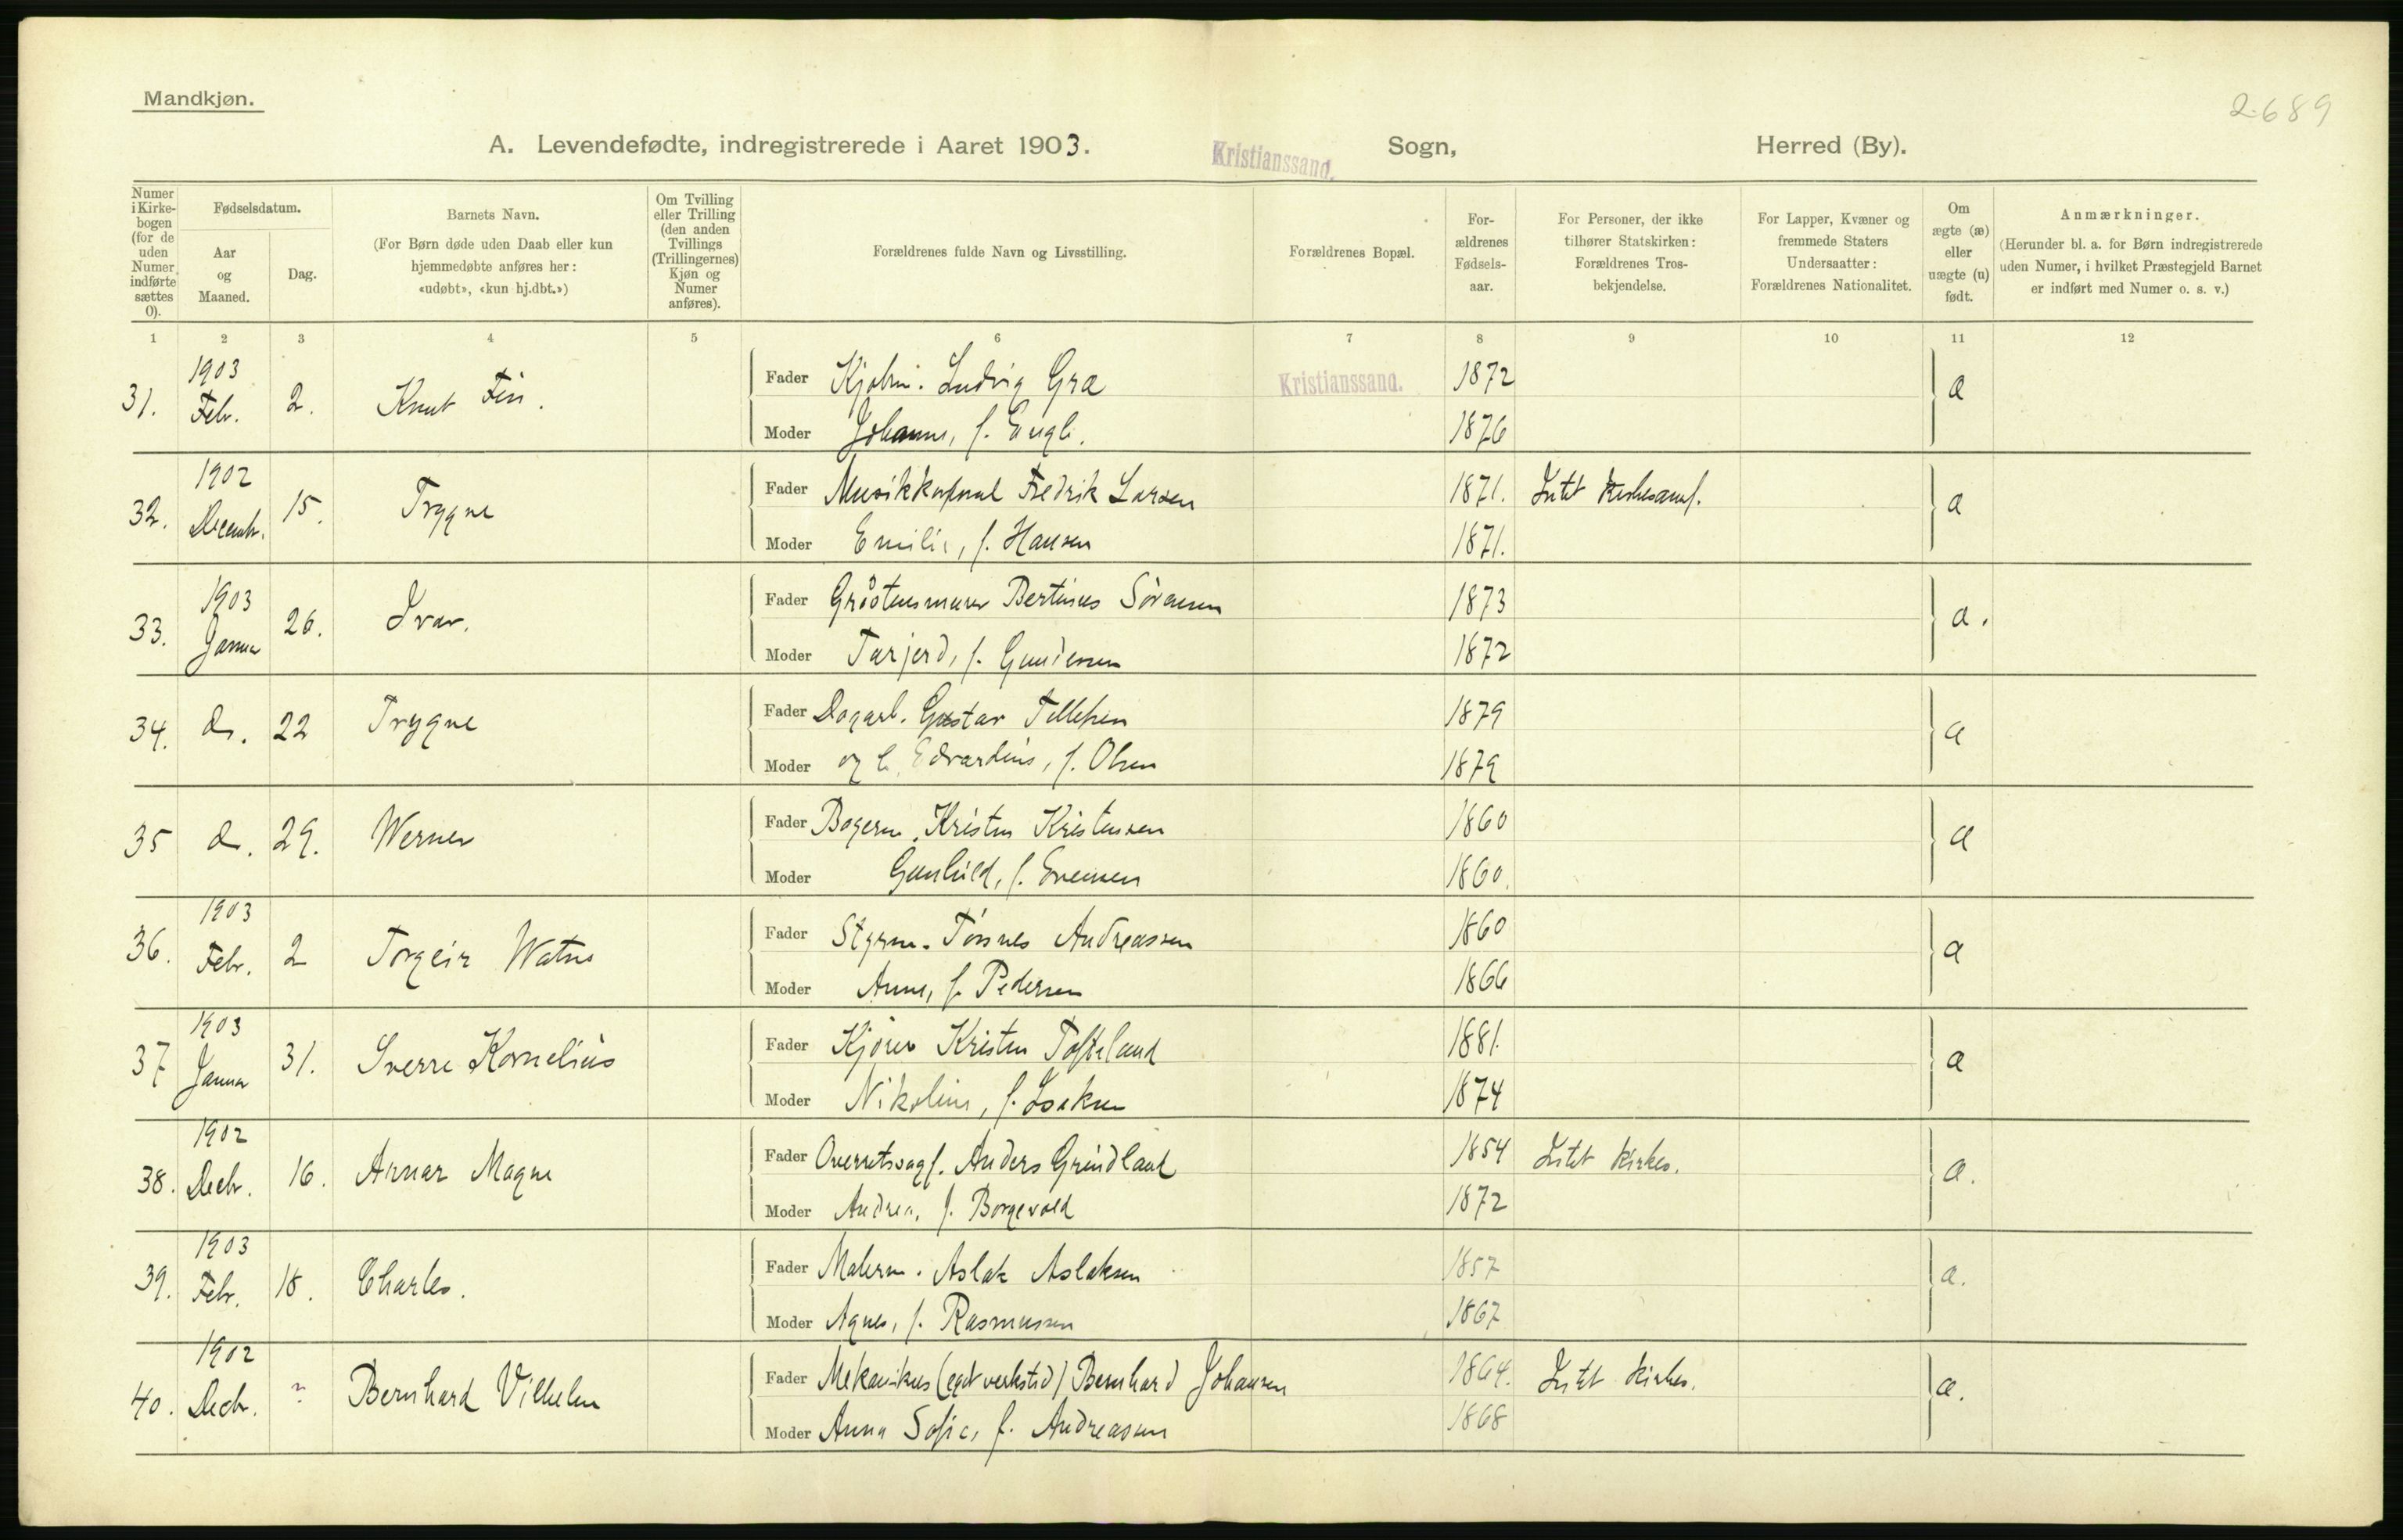 Mandkjøn.
2689
A. Levendefødte, indregistrerede i Aaret 1903. Kristianssand. Sogn, Herred (By).
Numer i Kirkebogen (for de uden Numer indførte sættes 0).
Fødselsdatum.
Aar og Maaned.
Dag.
Barnets Navn.
(For Børn døde uden Daab eller kun hjemmedøbte anføres her: «udøbt», «kun hj.dbt.»)
Om Tvilling eller Trilling (den anden Tvillings (Trillingernes) Kjøn og Numer anføres).
Forældrenes fulde Navn og Livsstilling.
Forældrenes Bopæl.
Forældrenes Fødselsaar.
For Personer, der ikke tilhører Statskirken: Forældrenes Trosbekjendelse.
For Lapper, Kvæner og fremmede Staters Undersaatter: Forældrenes Nationalitet.
Om ægte (æ) eller uægte (u) født.
Anmærkninger.
(Herunder bl. a. for Børn indregistrerede uden Numer, i hvilket Præstegjeld Barnet er indført med Numer o. s. v.)
1 2 3 4 5 6 7 8 9 10 11 12
31. 1903 Febr. 2. Knut Finn. Fader Ludvig Gra Kristianssand. 1872 a
Moder Johanne, f. 1876
32. 1902 Decembr. 15. Trygve Fader Musikkorporal Fredrik Larsen 1871. Intet Kirkesamf. a
Moder Emilie, f. Hansen 1871.
33. 1903 Januar 26. Ivar. Fader Gråstensmurer Bertinius Sörensen 1873 a.
Moder Tarjerd, f. Gundersen 1872
34. d. 22 Trygve Fader Dagarb. Gustav Tellefsen 1879 a
Moder og h. Edvardine, f. Olsen 1879
35 d. 29. Werner Fader Kristen Kristensen 1860 a
Moder Gunhild, f. Evensen 1860.
36. 1903 Febr. 2 Torgeir Watne Fader Styrm. Tönnes Andreassen 1860 a
Moder Anne, f. Pedersen 1866
37 1903 Januar 31. Sverre Kornelius Fader Kjörer Kristen Tofteland 1881. a
Moder Nikoline, f. Isaksen 1874
38. 1902 Decbr. 16. Arnar Magne Fader Overretssagf. Anders Grindland 1854 Intet Kirkes. a.
Moder Andrea, f. Borgevold 1872
39. 1903 Febr. 18. Charles. Fader Malerm. Aslak Aslaksen 1857 a.
Moder Agnes, f. Rasmussen 1867
40. 1902 Decbr. Bernhard Vilhelm Fader Mekanikus (eget verksted) Bernhard Johansen 1864. Intet Kirkes. a.
Moder Anna Sofie, f. Andreassen 1868